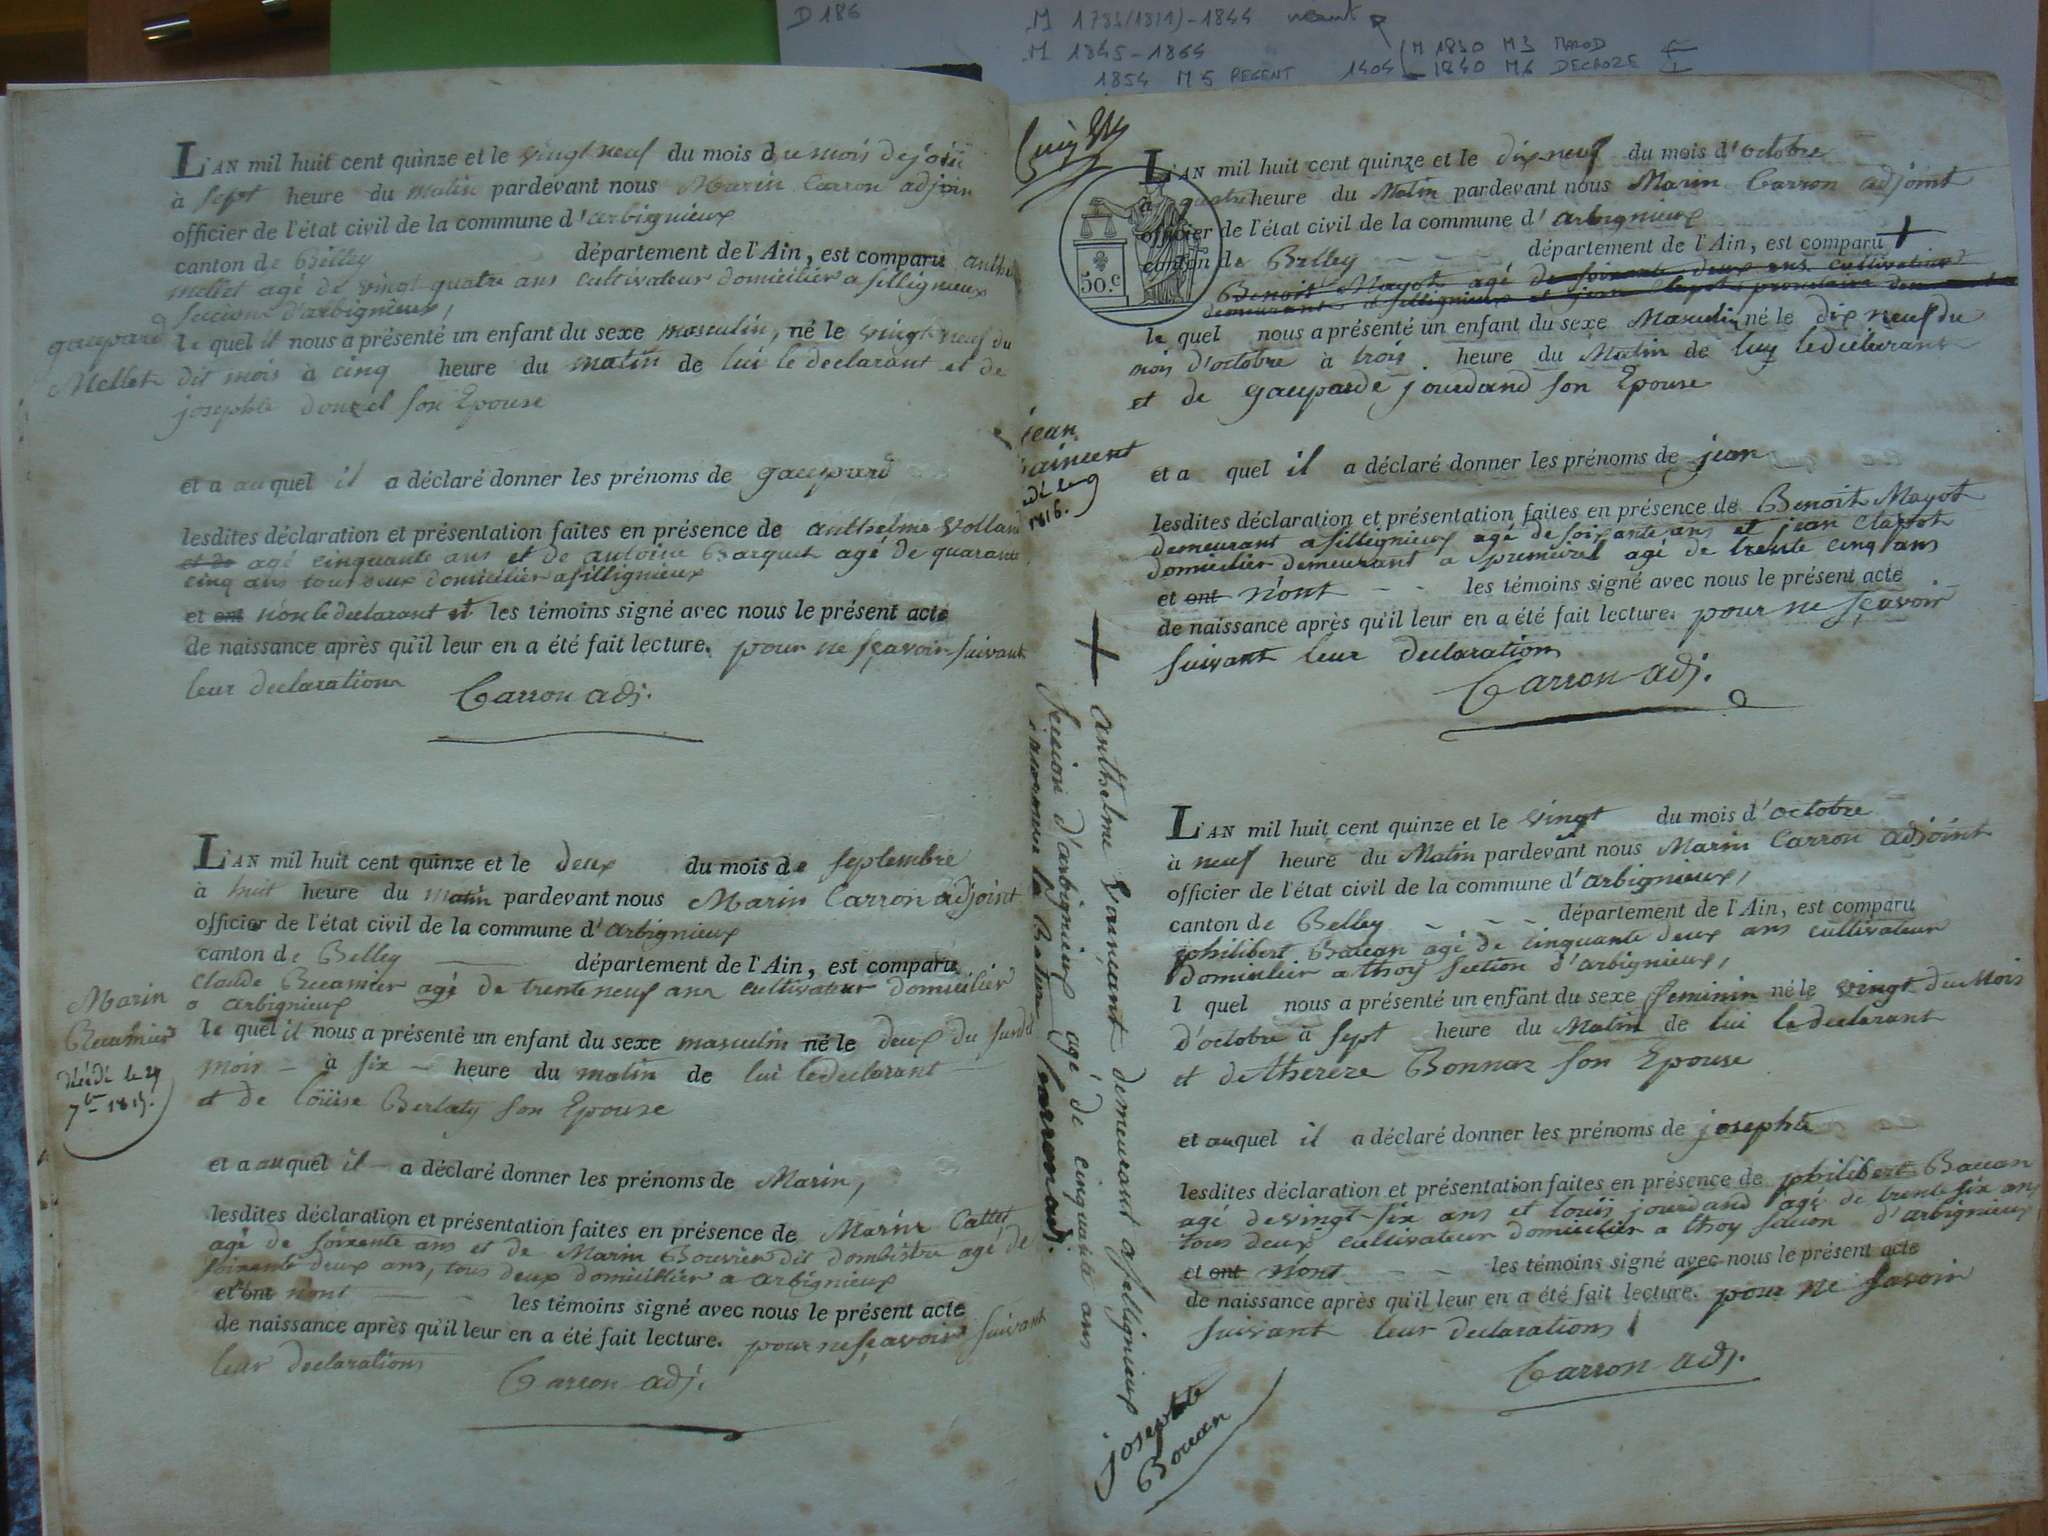 D 186
M 1793(1814)-1844
M 1845-1864
1854 M 5 REGENT
M 1830 M 3 MAROD
1404 1840 M 6 DECROZE
L'AN mil huit cent quinze et le vingt neuf du mois du mois de
à sept heure du matin pardevant nous Marin Carron adjoin
officier de l'état civil de la commune d'arbignieux
canton de Belley département de l'Ain, est comparu anthe
mellet agé de vingt quatre ans cultivateur domicilier a sillignieux
section d'arbignieux,
gaspard
Mellet
le quel il nous a présenté un enfant du sexe masculin, né le vingt neuf du
dit mois à cinq heure du matin de lui le declarant et de
josephte douzel son Epouse
et a auquel il a déclaré donner les prénoms de gaspard
lesdites déclaration et présentation faites en présence de anthelme Volland
et de agé cinquante ans et de antoine Barquet agé de quarante
cinq ans tous deux domicilier a sillignieux
et ont non le declarant et les témoins signé avec nous le présent acte
de naissance après qu'il leur en a été fait lecture. pour ne sçavoir suivant
leur declaration
Carron adj.
L'AN mil huit cent quinze et le deux du mois de septembre
à huit heure du matin pardevant nous Marin Carron adjoint
officier de l'état civil de la commune d'arbignieux
canton de Belley département de l'Ain, est comparu
Claude Recamier agé de trente neuf ans cultivateur domicilier
a arbignieux
Marin
Recamier
décédé le 29
7bre 1815.
le quel il nous a présenté un enfant du sexe masculin né le deux du susdit
mois à six heure du matin de lui le declarant
et de loüise Berlioty son Epouse
et a auquel il a déclaré donner les prénoms de Marin,
lesdites déclaration et présentation faites en présence de Marin Cattet
agé de soixente ans et de Marin Bouvier dit dombistre agé de
soixente deux ans, tous deux domicillier a arbignieux
et ont nont les témoins signé avec nous le présent acte
de naissance après qu'il leur en a été fait lecture. pour ne sçavoir suivant
leur declaration
Carron adj.
50.c
L'AN mil huit cent quinze et le dix neuf du mois d'octobre
à quatre heure du Matin pardevant nous Marin Carron adjoint
officier de l'état civil de la commune d'arbignieux
canton de Belley département de l'Ain, est comparu +
Benoit Mayot agé de soixante deux ans cultivateur
demeurant a sillignieux et jean Clapot
le quel nous a présenté un enfant du sexe Masculin né le dix neuf du
mois d'octobre à trois heure du Matin de luy le déclarant
et de gasparde jourdand son Epouse
jean
vaincent
1816.
et a quel il a déclaré donner les prénoms de jean
lesdites déclaration et présentation faites en présence de Benoit Mayot
demeurant a sillignieux agé de soixante ans et jean Clapot
domicilier demeurant a premeizel agé de trente cinq ans
et ont nont les témoins signé avec nous le présent acte
de naissance après qu'il leur en a été fait lecture. pour ne sçavoir
suivant leur declaration
Carron adj.
+ anthelme Vainçant demeurant a sillignieux
section d'arbignieux agé de cinquante ans
Carron adj.
L'AN mil huit cent quinze et le vingt du mois d'octobre
à neuf heure du Matin pardevant nous Marin Carron adjoint
officier de l'état civil de la commune d'arbignieux,
canton de Belley département de l'Ain, est comparu
philibert Bauan agé de cinquante deux ans cultivateur
domicilier a thoy section d'arbignieux,
l quel nous a présenté un enfant du sexe feminin né le vingt du Mois
d'octobre à sept heure du Matin de lui le declarant
et de thereze Bonnaz son Epouse
et auquel il a déclaré donner les prénoms de josephte
lesdites déclaration et présentation faites en présence de philibert Bauan
agé de vingt-six ans et loüis jourdand agé de trente six ans
tous deux cultivateur domicilier a thoy section d'arbignieux
et ont nont les témoins signé avec nous le présent acte
de naissance après qu'il leur en a été fait lecture. pour ne savoir
suivant leur declarations
Carron adj.
josephte
Bouan